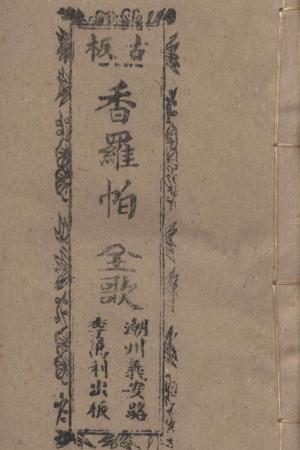 古板
香羅帕全歌
潮州義安路
李萬利出板